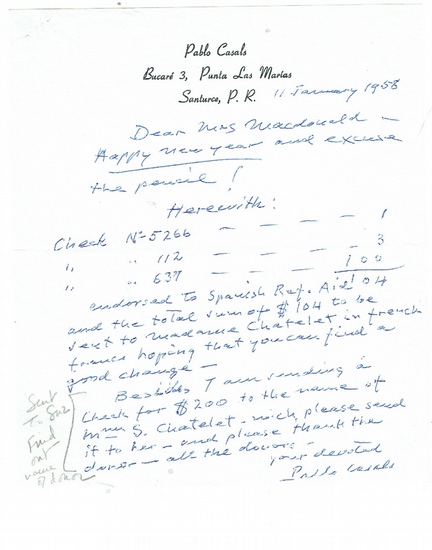 Pablo Casals
Bucaré 3, Punta Las Marias
Santurce, P. R.
11 January 1958
Dear Mrs Macdonald –
Happy new year and excuse
the pencil!
Herewith:
Check Nº 5266 – – – – 1
" " 112 – – – – 3
" " 637 – – – 100
endorsed to Spanish Ref. Aid 104
and the total sum of $104 to be
sent to madame Chatelet in french
francs hoping that you can find a
good change –
Besides I am sending a
check for $200 to the name of
Mme S. Chatelet – wich please send
it to her – and please thank the
donor – all the donors –
your devoted
Pablo Casals
Sent
to Suz
Find
out
name
of donor